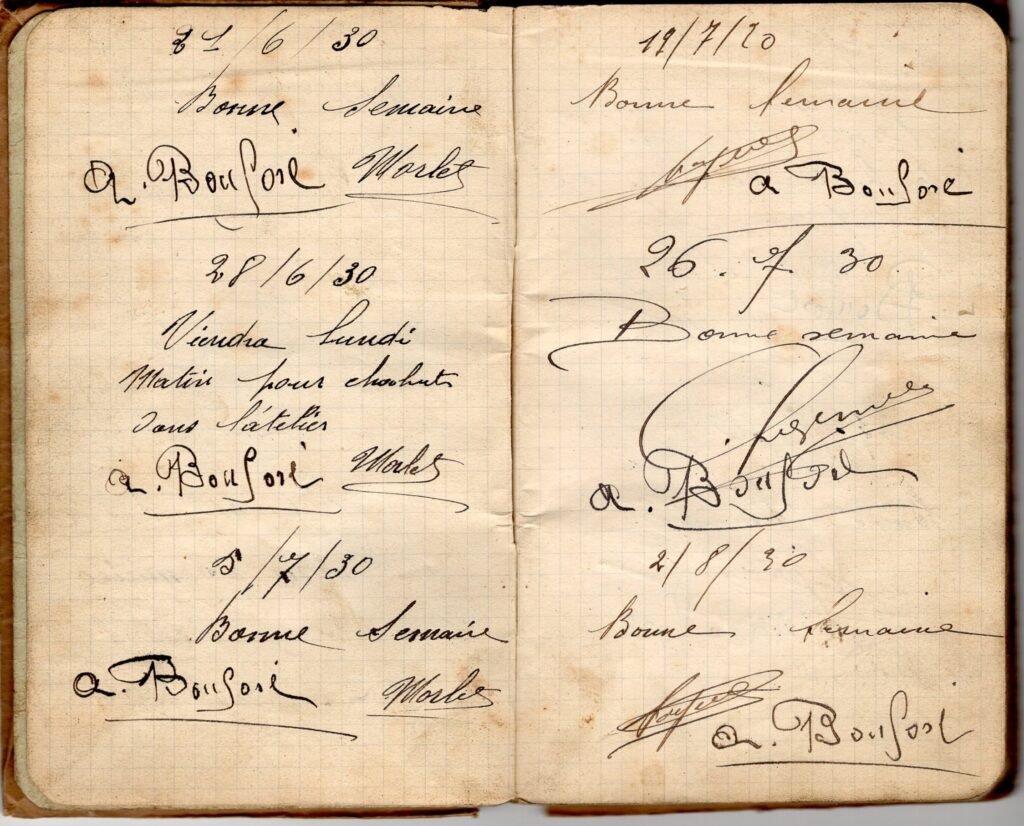 21/6/30
Bonne Semaine
a. Bousoré Morlet
28/6/30
Viendra lundi
Matin pour
dans l'atelier
a. Bousoré Morlet
5/7/30
Bonne Semaine
a. Bousoré Morlet
19/7/30
Bonne Semaine
a Bousoré
26.7 30
Bonne semaine
a. Bousoré
2/8/30
Bonne Semaine
a. Bousoré